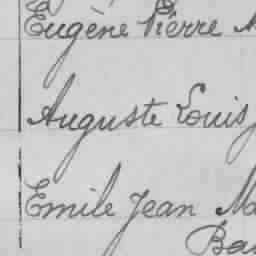 Eugène Pierre
Auguste Louis
Emile Jean